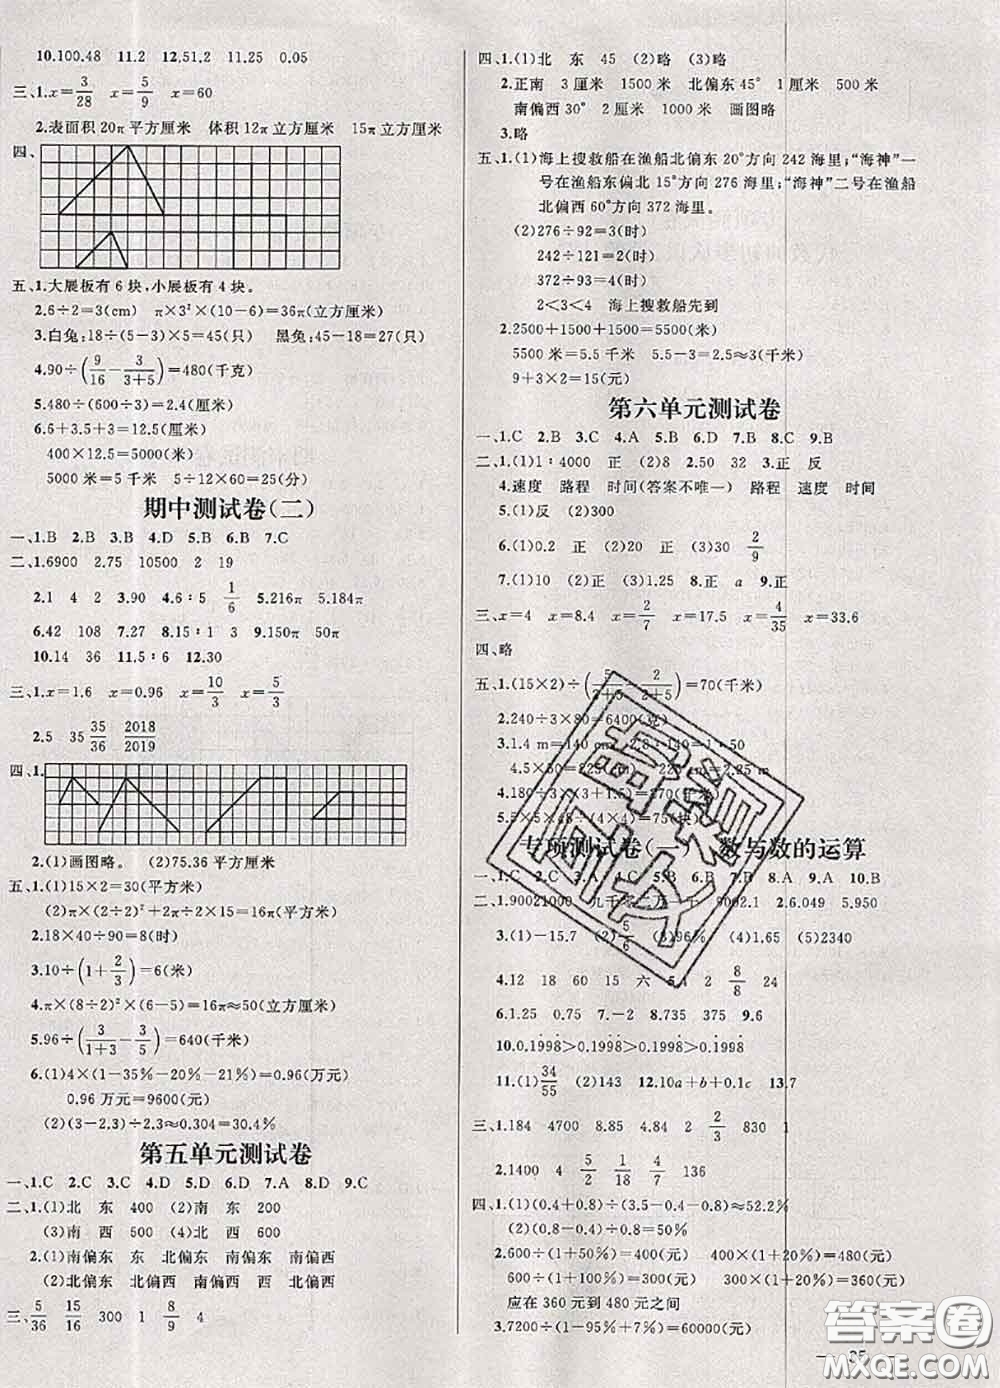 10.100.48 11.2 12.51.2 11.25 0.05
三、1.x=3/28 x=5/9 x=60
2.表面积20π平方厘米 体积12π立方厘米 15π立方厘米
四、
五、1.大展板有6块,小展板有4块。
2.6÷2=3(cm) π×3²×(10-6)=36π(立方厘米)
3.白兔:18÷(5-3)×5=45(只) 黑兔:45-18=27(只)
4.90÷(9/16-3/(3+5))=480(千克)
5.480÷(600÷3)=2.4(厘米)
6.6+3.5+3=12.5(厘米)
400×12.5=5000(米)
5000米=5千米 5÷12×60=25(分)
期中测试卷(二)
一、1.B 2.B 3.B 4.D 5.B 6.B 7.C
二、1.6900 2.75 10500 2 19
2.1 4 2 3.90 4.6∶5 1/6 5.216π 5.184π
6.42 108 7.27 8.15∶1 3 9.150π 50π
10.14 36 11.5∶6 12.30
三、1.x=1.6 x=0.96 x=10/3 x=5/3
2.5 35 35/36 2018/2019
四、1.
2.(1)画图略。 (2)75.36平方厘米
五、1.(1)15×2=30(平方米)
(2)π×2²×(1/2)×2+2π×2×15×(1/2)=16π(平方米)
2.18×40÷90=8(时)
3.10÷(1+2/3)=6(米)
4.π×(8÷2)²×(6-5)=16π≈50(立方厘米)
5.96÷(3/(1+3)-3/5)=640(千米)
6.(1)4×(1-35%-20%-21%)=0.96(万元)
0.96万元=9600(元)
(2)(3-2.3)÷2.3≈0.304=30.4%
第五单元测试卷
一、1.C 2.C 3.C 4.D 5.D 6.D 7.A 8.D 9.C
二、1.(1)北 东 400 (2)南 东 200
(3)南 西 500 (4)北 西 600
2.(1)南偏东 东 北偏东 南偏东 南偏西
(2)北偏东 北偏西 南偏西 西 北偏西
三、5/36 15/16 300 1 8/9 4
四、1.(1)北 东 45 (2)略 (3)略
2.正南 3厘米 1500米 北偏东45° 1厘米 500米
南偏西30° 2厘米 1000米 画图略
3.略
五、1.(1)海上搜救船在渔船北偏东20°方向242海里;“海神”一
号在渔船东偏北15°方向276海里;“海神”二号在渔船
北偏西60°方向372海里。
(2)276÷92=3(时)
242÷121=2(时)
372÷93=4(时)
2<3<4 海上搜救船先到
2.2500+1500+1500=5500(米)
5500米=5.5千米 5.5-3=2.5≈3(千米)
9+3×2=15(元)
第六单元测试卷
一、1.C 2.B 3.C 4.A 5.B 6.D 7.B 8.C 9.B
二、1.(1)1∶4000 正 (2)8 2.50 32 3.正 反
4.速度 路程 时间(答案不唯一) 路程 速度 时间
5.(1)反 (2)300
6.(1)0.2 正 (2)20 正 (3)30 2/9
7.(1)10 (2)正 (3)1.25 8.正 a 9.正
三、x=4 x=8.4 x=2/7 x=17.5 x=4/35 x=33.6
四、略
五、1.(15×2)÷(5/(2+5)-2/(2+5))=70(千米)
2.240÷3×80=6400(克)
3.1.4 m=140 cm 2.8∶140=1∶50
4.5×50=225(cm) 225cm=2.25 m
4.180÷3×(3+1.5)=
5.5×5×48÷(4×4)=75(块)
专项测试卷(一) 数与数的运算
一、1.C 2.C 3.A 4.C 5.B 6.B 7.B 8.A 9.A 10.B
二、1.90021000 九千零二万一千 9002.1 2.6.049 5.950
3.(1)-15.7 (2)5/6 (3)96% (4)1.65 (5)2340
4.12 18 60 15 六 1 2 8/8 24
6.1.25 0.75 7.-2 8.735 375 9.6
10.0.1998>0.1998>0.1998>0.1998
11.(1)34/55 (2)143 12.10a+b+0.1c 13.7
三、1.184 4700 8.85 4.84 2 2/3 830 1
2.1400 4 5/2 1/18 4/7 136
四、1.(1)(0.4+0.8)÷(3.5-0.4-0.8)≈52.2%
(2)(0.8-0.4)÷0.8=50%
2.600÷(1+50%)=400(元) 400×(1+20%)=480(元)
600÷(1+100%)=300(元) 300×(1+20%)=360(元)
应在360元到480元之间
3.7200÷(1-95%+7%)=60000(元)
答案圈
MXQE.COM